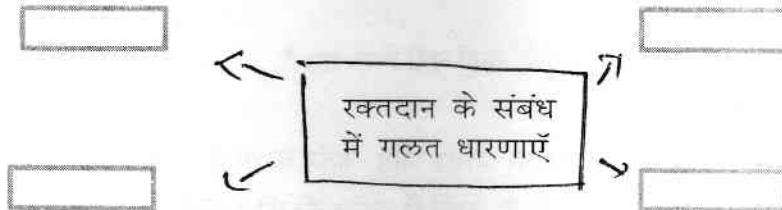 रक्तदान के संबंध
में गलत धारणाएॅ